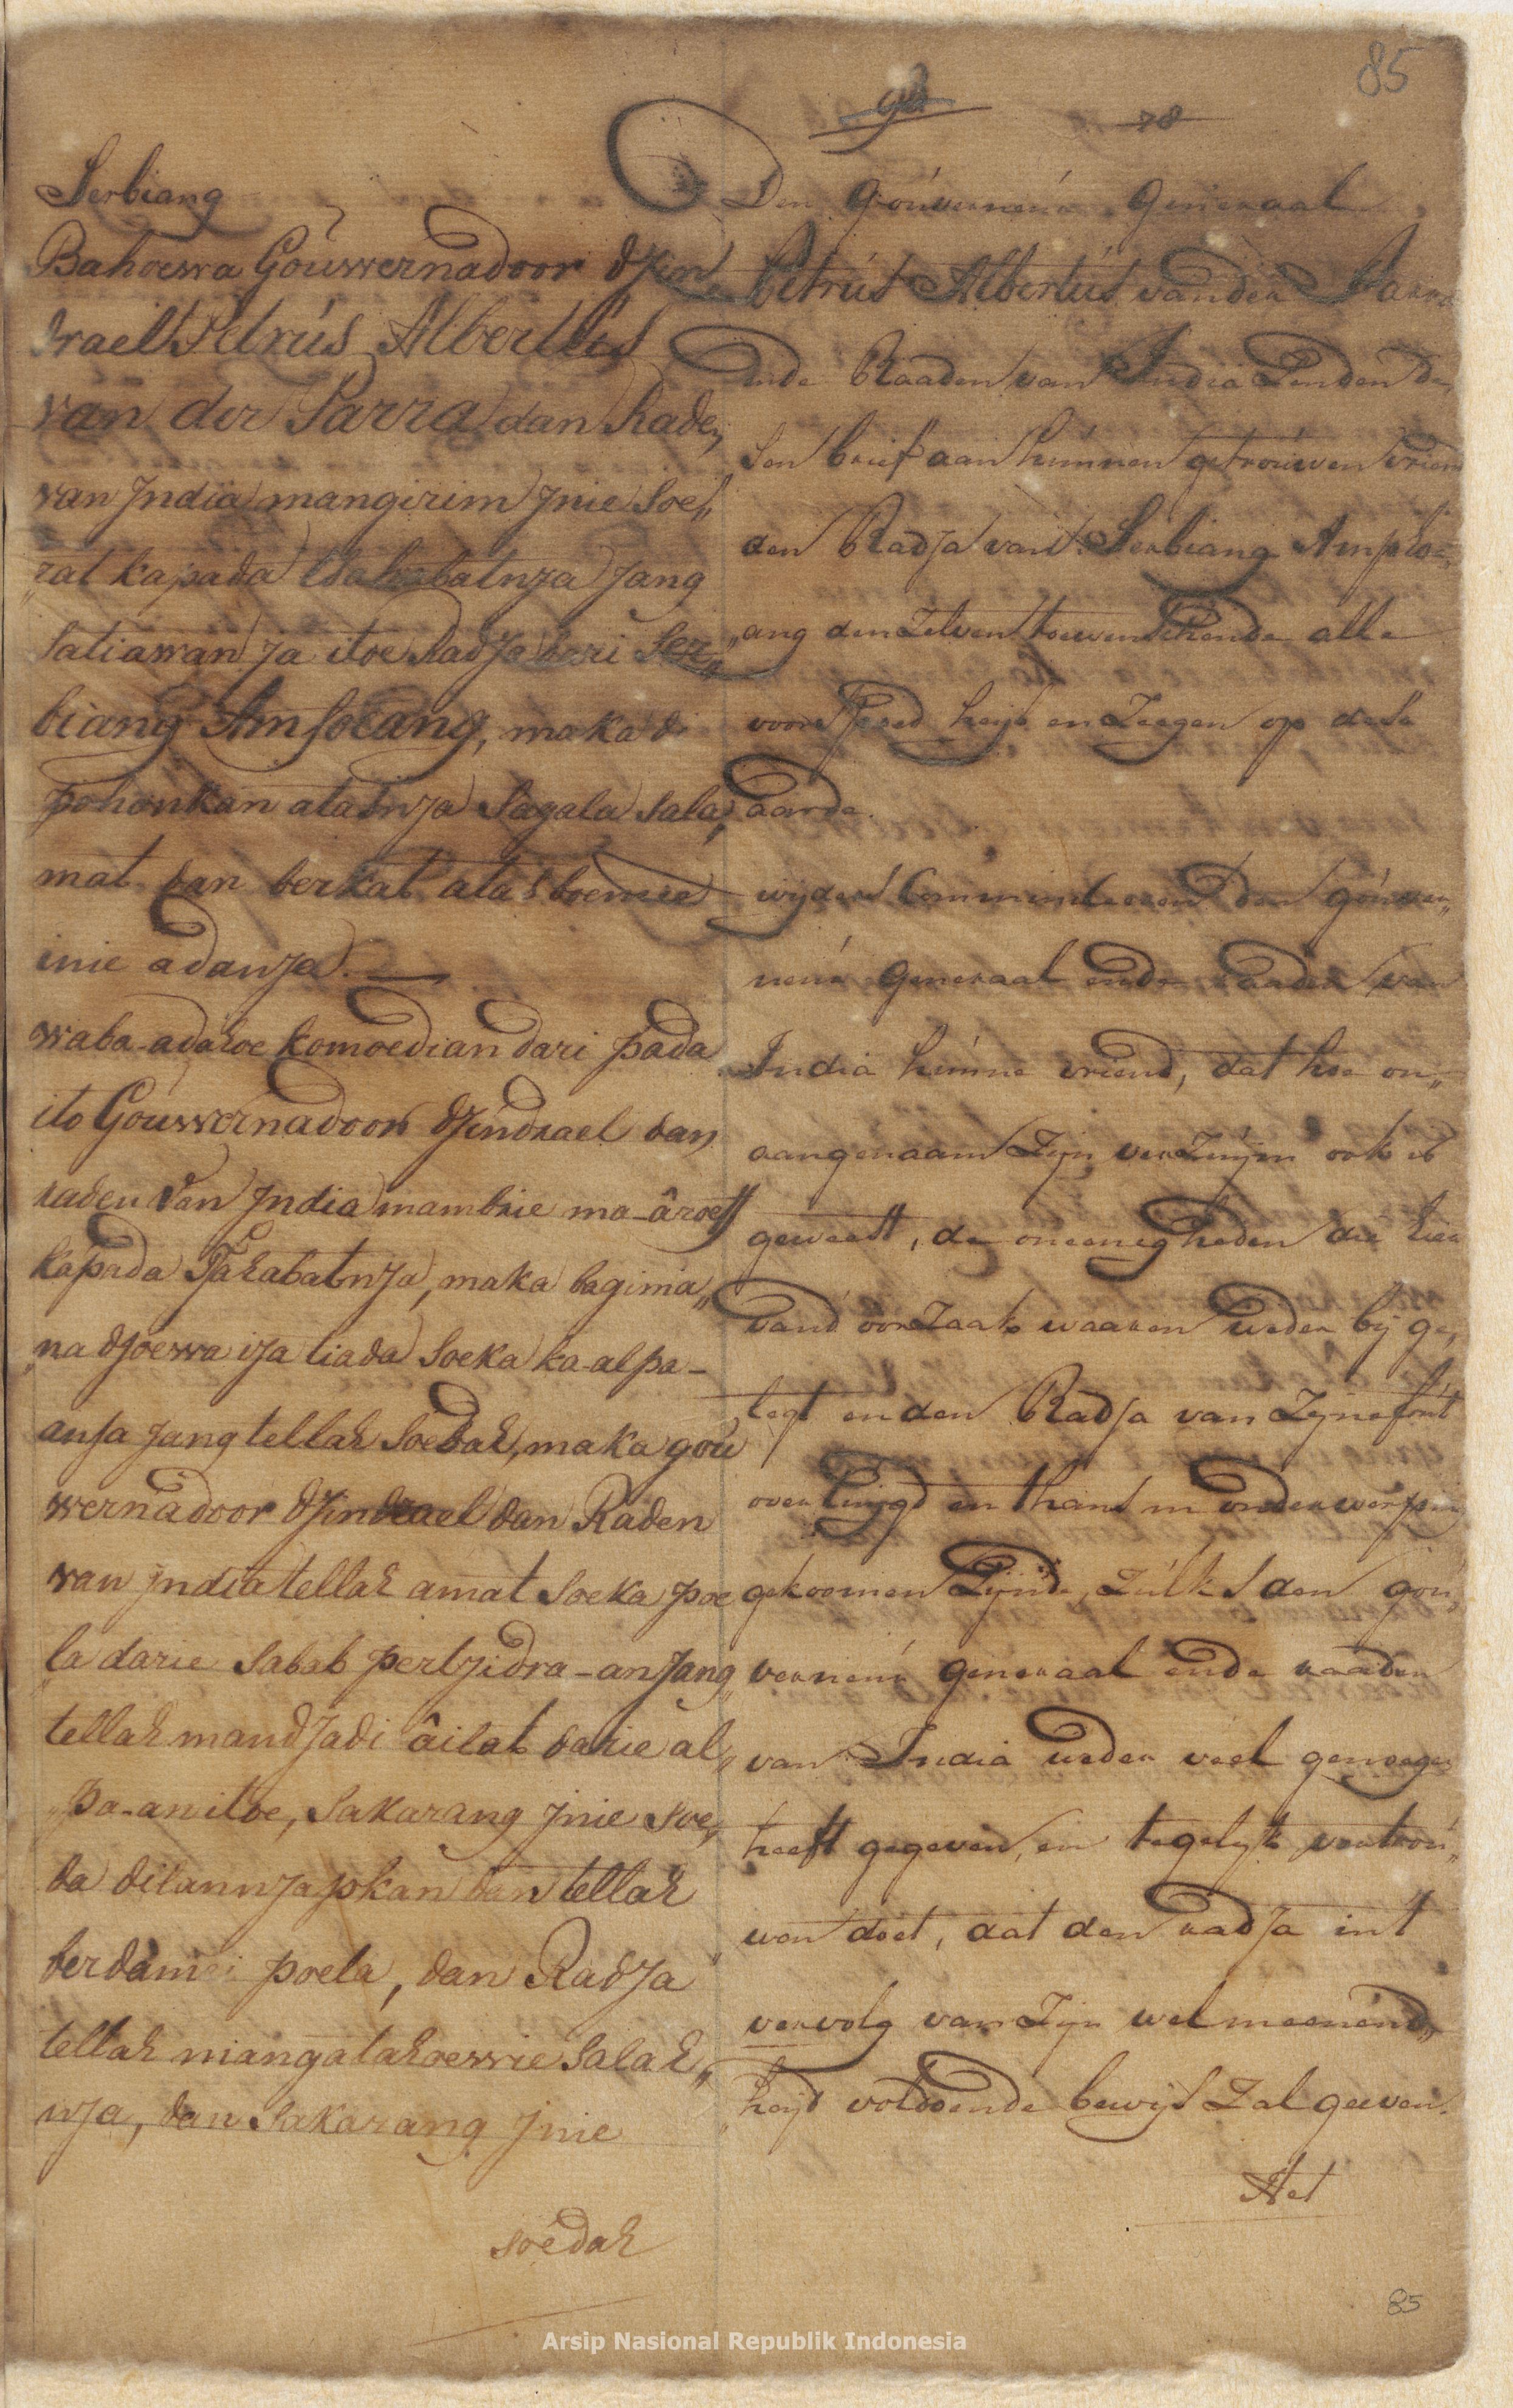 85
98
78
Serbiang
Bahoewa Gouwernadoor Djin
draelt Petrús Albertús
van der Parra dan Rade„
van India mangirim Jnie Soe„
„rat kapada Tsahabatnja Jang
Satiawan ja itoe Radja dari Ser„
biang Amsoeang, maka di
pohonkan atasnja Sagala Sala„
mat dan berkat atas boemie
inie adanja.
waba-adahoe komoedian dari pada
ito Gouwernadoor Djindrael dan
raden van India mambrie ma-âroef
kapada Tsahabatnja, maka bagima„
„na djoewa ija tiada Soeka ka-alpa-
anja Jang tellah Soedah, maka gou
wernadoor Djindrael dan Raden
van India tellah amat Soeka poe
„la darie Sabab pertjidra-an Jang
tellah mandjadi âilat darie al„
„pa-an itoe, Sakarang Jnie Soe„
da dilannjapkan dan tellah
berdamei poela, dan Radja
tellah mangatahoewie Salah„
nja, dan Sakarang Jnie
soedah
Den Goúverneúr Generaal
Petrús Albertús van der Parra
ende Raaden van India Zenden de„
sen brief aan húnnen getroúwen vrien
den Radja van Serbiang Ampso„
„ang den Zelven toewenschende alle
voorspoed heijl en Zeegen op dese
aarde.
wijders Communiceeren den goúver„
neúr Generaal ende raaden van
India húnne vriend, dat hoe on„
aangenaam Zijn verZuijm ook is
geweest, de oneenigheden die hier
van d'oorZaak waaren weder bij ge„
legt en den Radja van Zijne foút
overtuijgd en thans in onderwerping
gekoomen Zijnde, Zúlks den goú„
verneúr generaal ende raaden
van India weder veel genoegen
heeft gegeven, en tegelijk vertroú„
wen doet, dat den radja in't
vervolg van Zijn welmeenend„
„heijd voldoende bewijs Zal geeven.
Het
85
Arsip Nasional Republik Indonesia